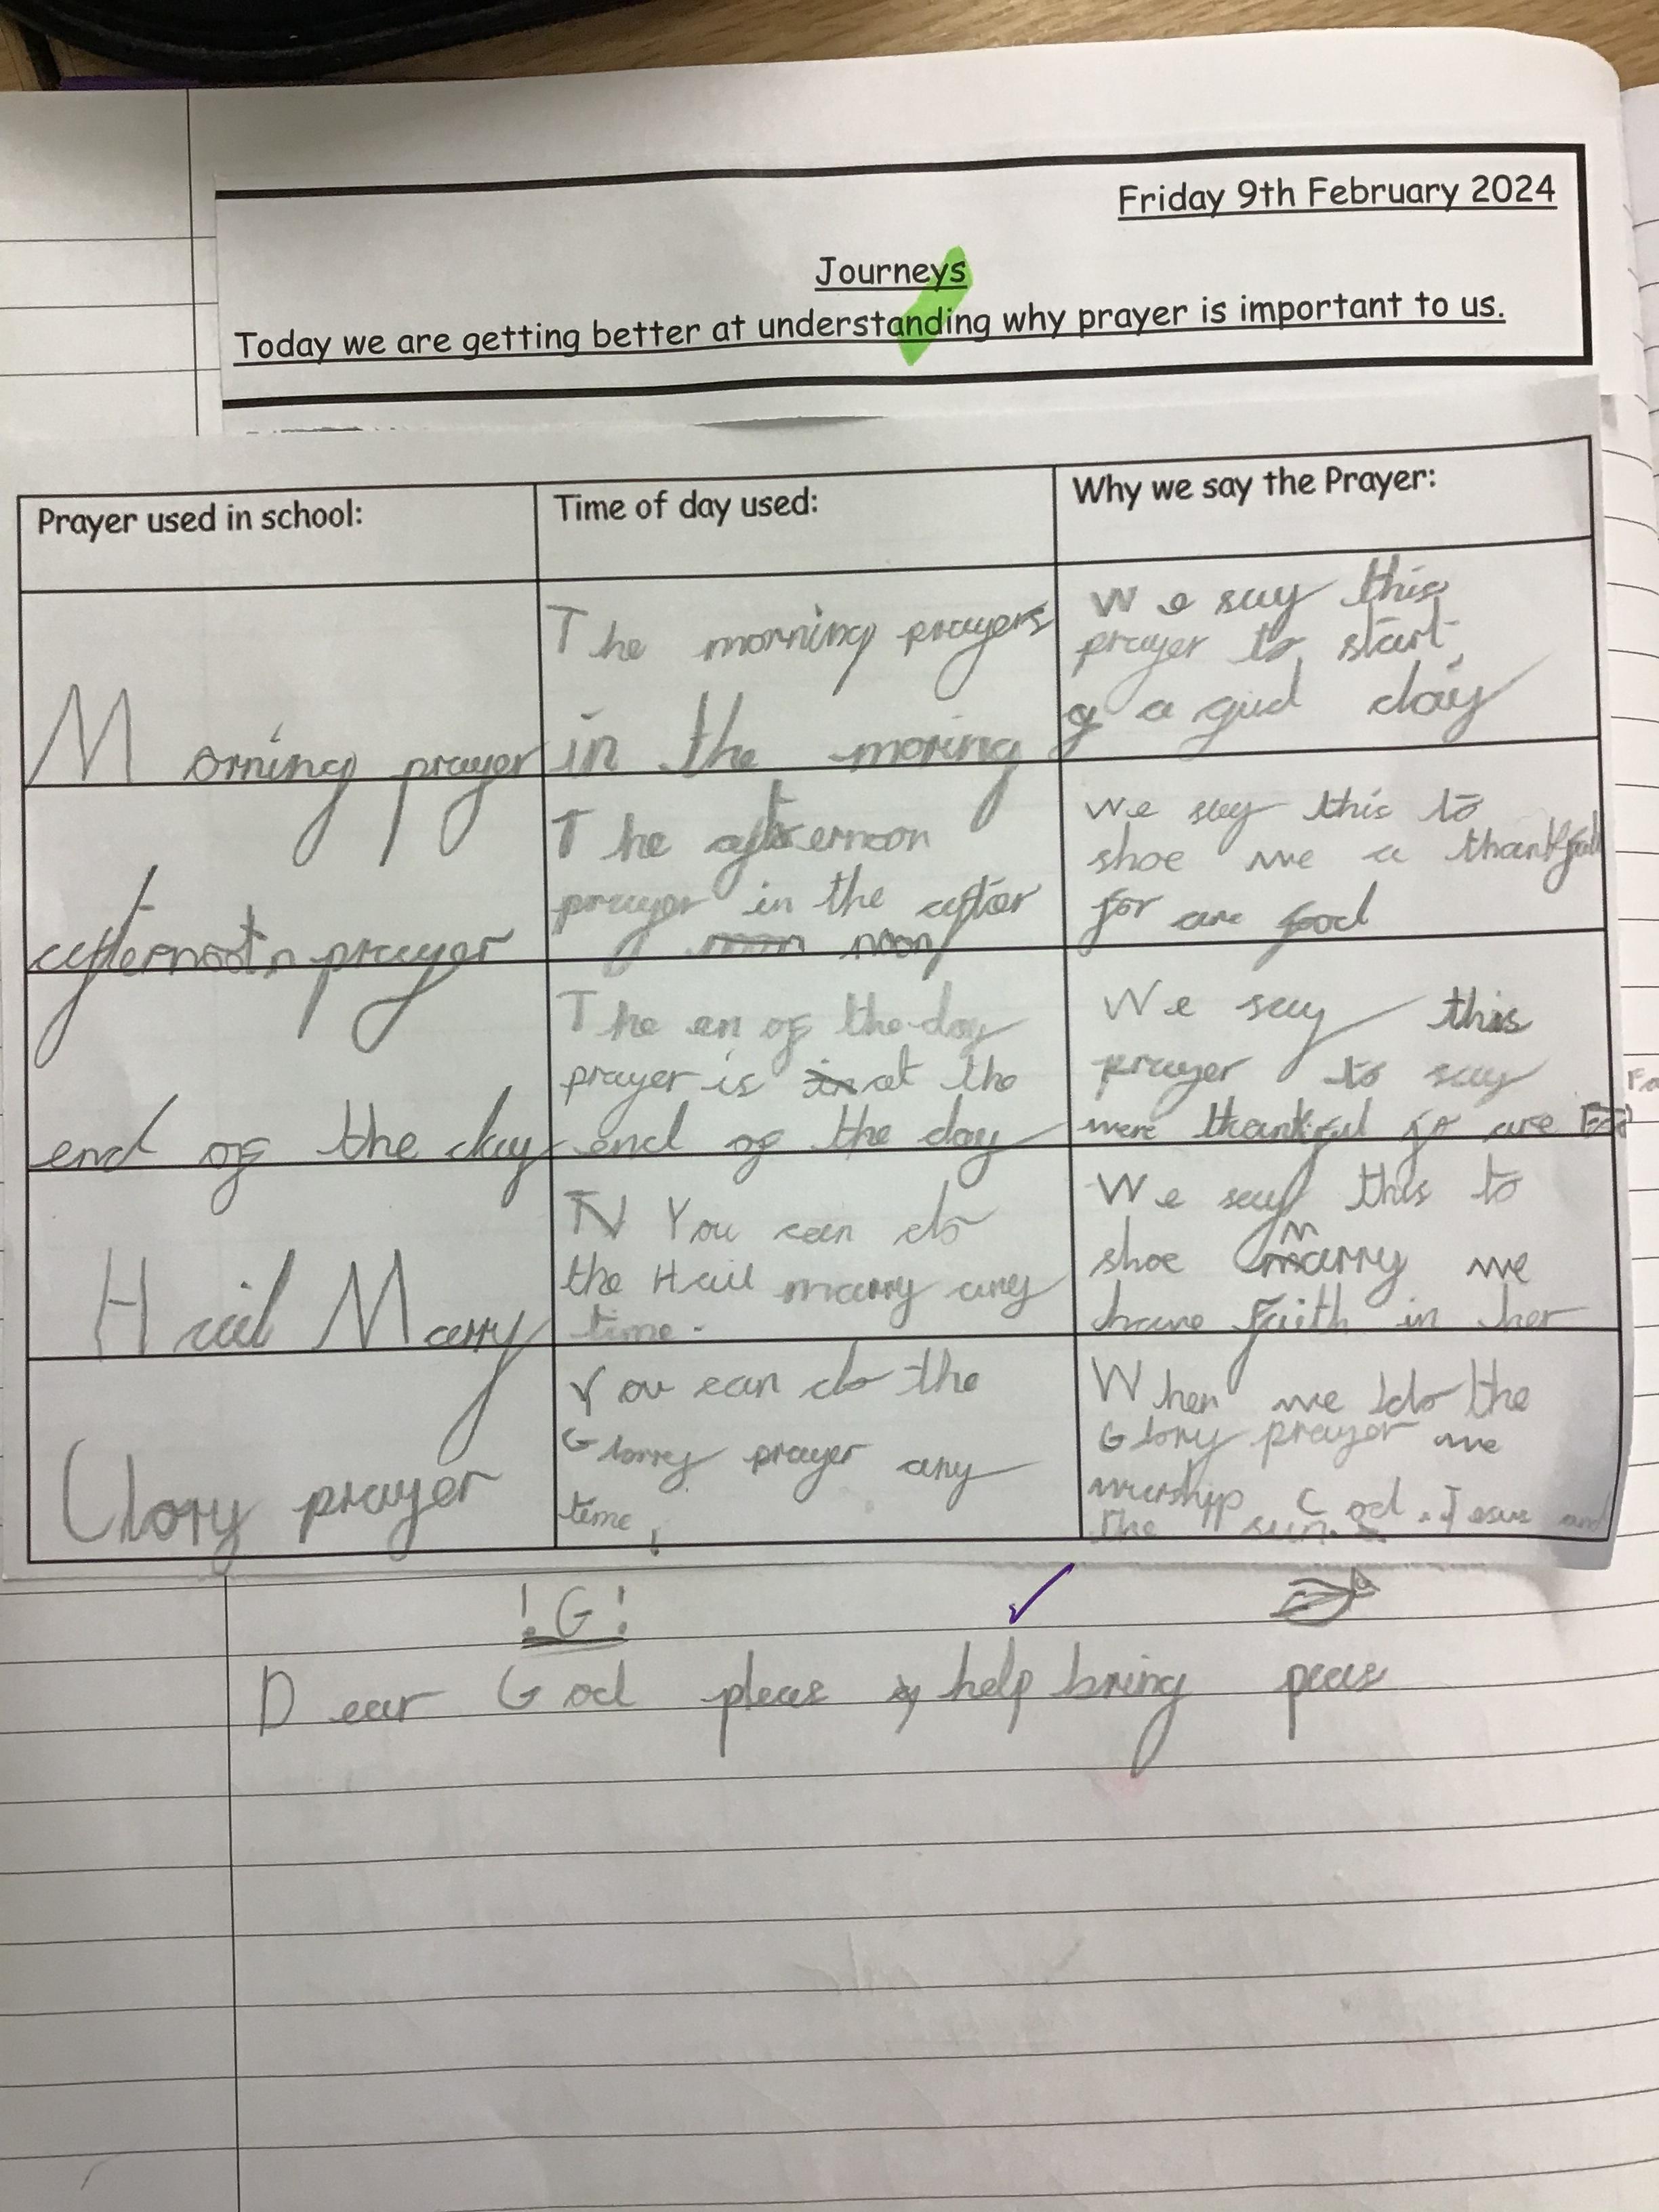 Friday 9th February 2024
Journeys
Today we are getting better at understanding why prayer is important to us.
Prayer used in school:
Time of day used:
Why we say the Prayer:
Morning prayer
The morning prayers
in the moring
We say this
prayer to start
a gud day
afternoon prayer
The afternoon
prayer in the after
noon
We say this to
shoe we a thankfull
for are food
end of the day
The en of the day
prayer is at the
end of the day
We say this
prayer to say
were thankful for are
Hail Marry
You can do
the Hail marry any
time.
We say this to
shoe marry we
have Faith in her
Glory prayer
You can do the
Glorrey prayer any
time!
When we do the
Glory prayer we
wurship God. Jesus and
the sun.
!G!
Dear God pleas help bring peas